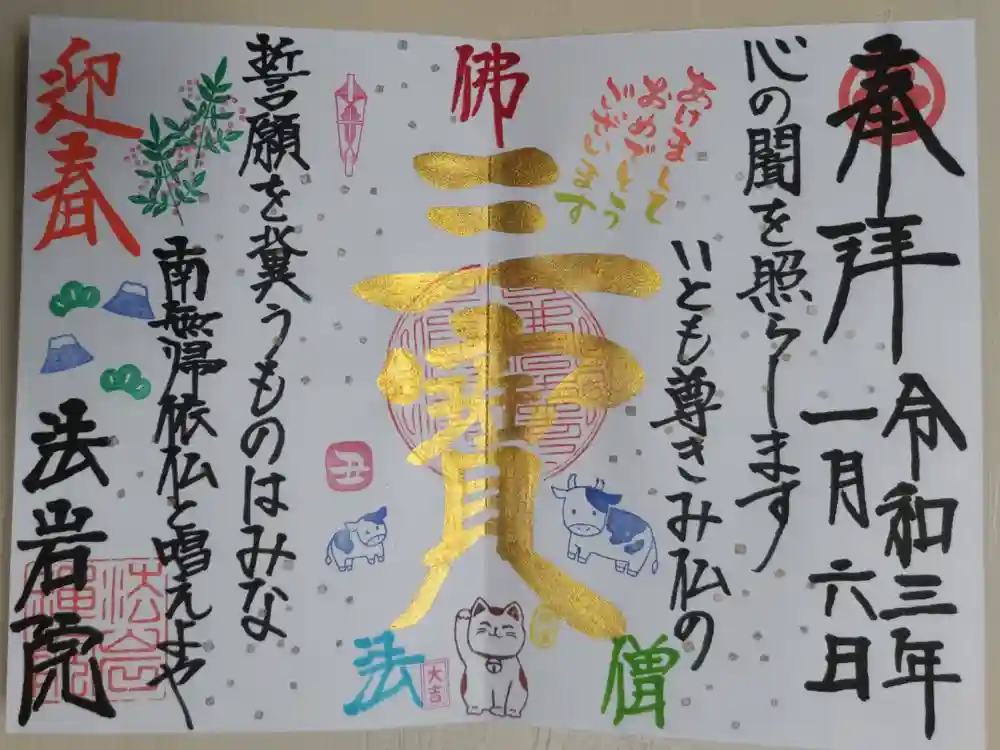 奉拝
令和三年
一月六日
心の闇を照らします
いとも尊きみ仏の
あけまして
おめでとう
ございます
佛
三寳
僧
法
大吉
丑
誓願を冀うものはみな
南無帰依仏と唱えよや
迎春
法岩院